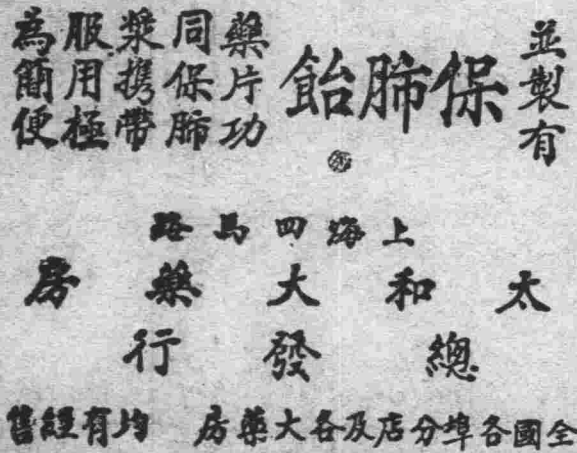 並製有
保肺飴
藥片功
同保肺
漿携帶
服用極
為簡便
上海四馬路
太和大藥房
總發行
全國各埠分店及各大藥房 均有經售